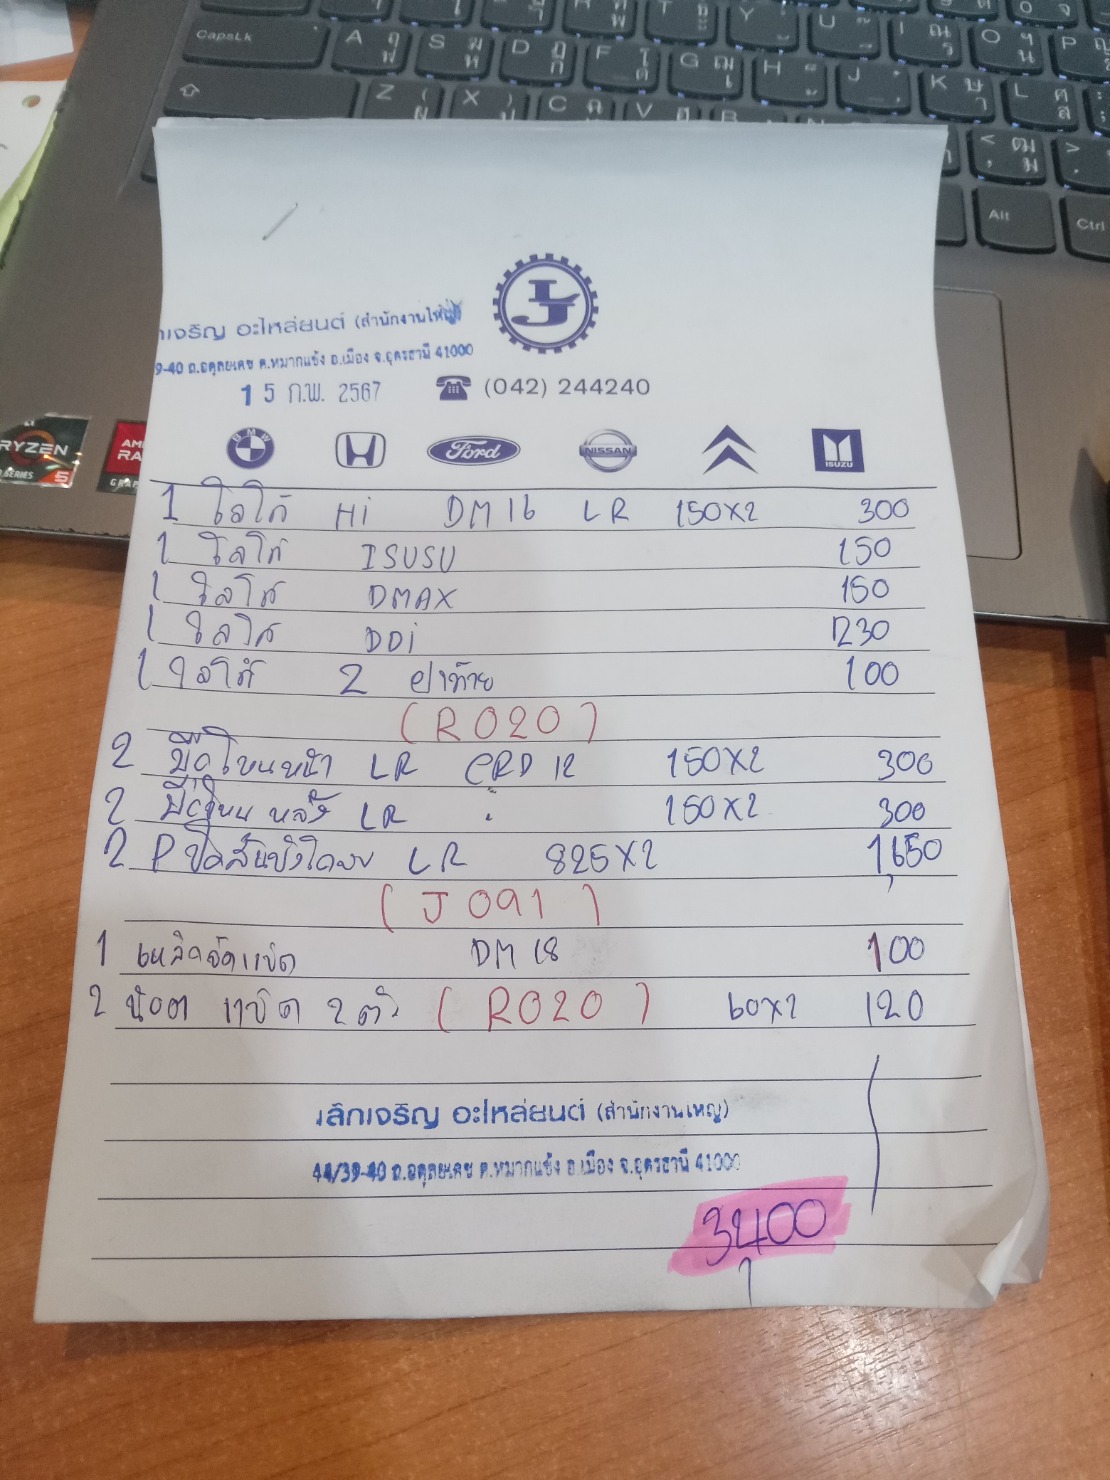 เจริญ อะไหล่ยนต์ (สำนักงานใหญ่)
39-40 ถ.อดุลยเดช ต.หมากแข้ง อ.เมือง จ.อุดรธานี 41000
15 ก.พ. 2567
(042) 244240
BMW
Ford
NISSAN
ISUZU
1 โลโก้ Hi DM16 LR 150X2 300
1 โลโก้ ISUSU 150
1 โลโก้ DMAX 150
1 โลโก้ DDi 230
1 โลโก้ 2 ฝาท้าย 100
(R020)
2 LR 150X2 300
2 LR 150X2 300
2 P LR 825X2 1,650
(J091)
1 DM18 100
2 น๊อต 2 ตัว (R020) 60X2 120
เล็กเจริญ อะไหล่ยนต์ (สำนักงานใหญ่)
44/39-40 ถ.อดุลยเดช ต.หมากแข้ง อ.เมือง จ.อุดรธานี 41000
3400
CapsLk
A
S
D
F
G
H
J
K
L
Z
X
C
V
B
Alt
Ctrl
RYZEN
5